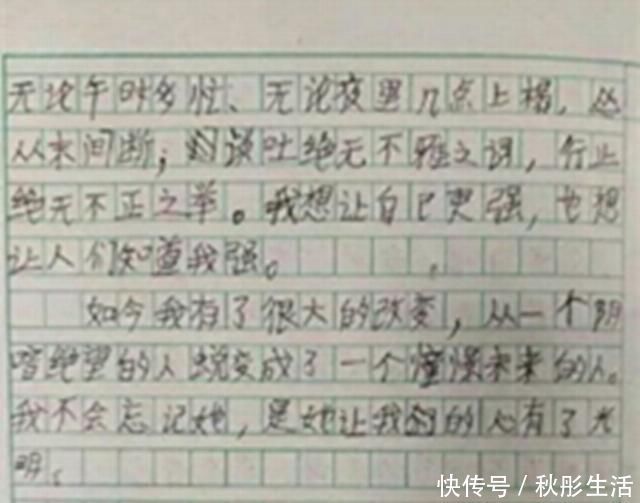 无论午时多忙、无论夜里几点上榻，
从未间断；谈吐绝无不雅之词，行止
绝无不正之举。我想让自己更强，也想
让人们知道我强。
如今我有了很大的改变，从一个阴
暗绝望的人蜕变成了一个憧憬未来的人。
我不会忘记她，是她让我的心有了光
明。
快传号／秋彤生活